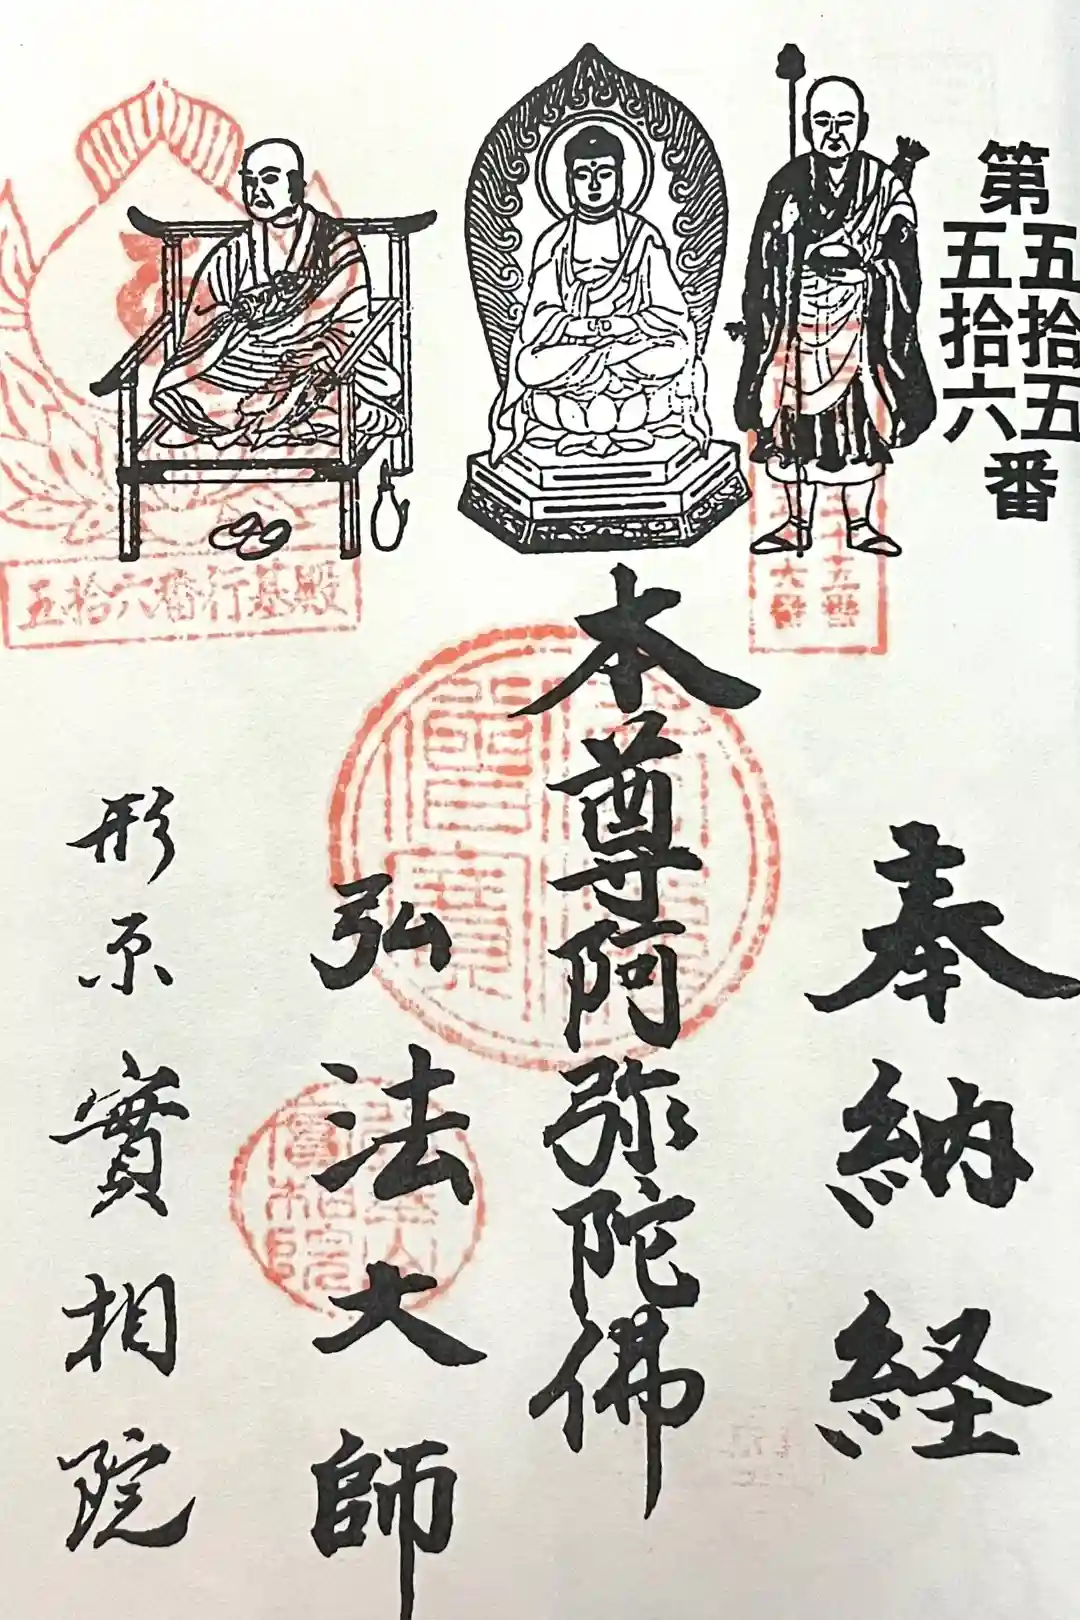 第五拾五五拾六番
奉納経
本尊阿弥陀佛
弘法大師
形原實相院
五拾六番行基殿